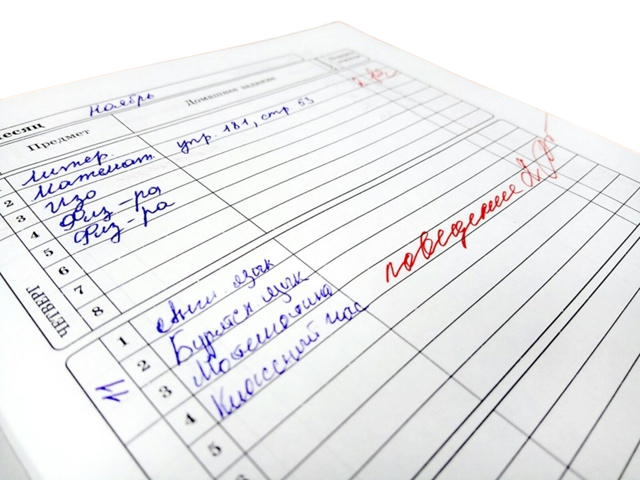 месяц Ноябрь
Предмет Домашнее задание
1 Литер.
2 Математ. упр. 181, стр 53
3 Изо
4 Физ-ра
5 Физ-ра
6
7
8
ЧЕТВЕРГ
1 Англ язык
2 Бурятск язык
3 Математика поведение 2
4 Классный час
5
11